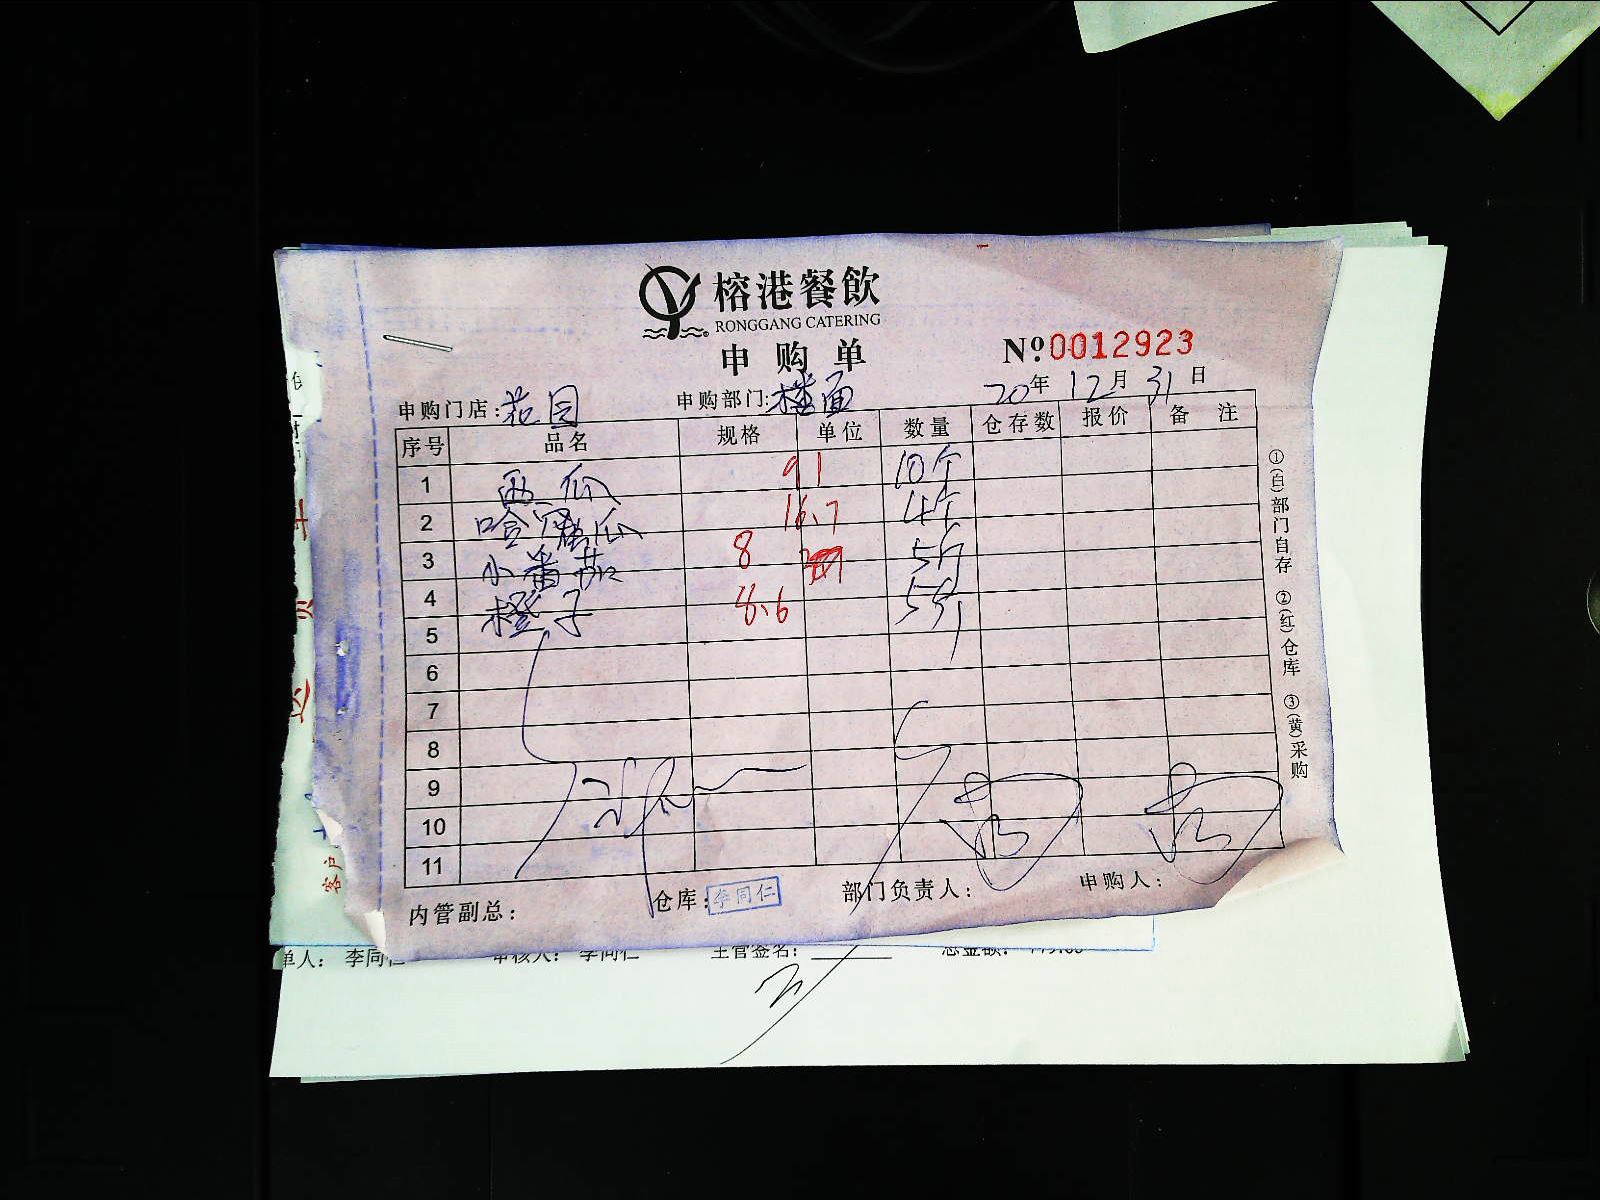 榕港餐飲
RONGGANG CATERING
申购单
Nº 0012923
申购门店: 花园 申购部门: 楼面 20年 12月 31日
序号 品名 规格 单位 数量 仓存数 报价 备注
1 西瓜 91 10个
2 哈密瓜 16.7 4个
3 小番茄 8 5斤
4 橙子 8.6 5斤
5
6
7
8
9
10
11
内管副总: 仓库: 李同仁 部门负责人: 申购人:
①(白)部门自存 ②(红)仓库 ③(黄)采购
单人: 李同仁 审核人: 李同仁 主管签名: 总金额:
客户